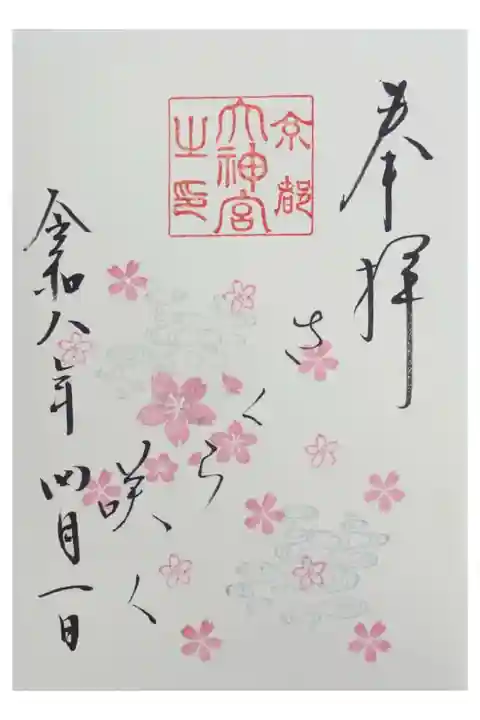 奉拝
京都
大神宮
之印
さくら咲く
令和八年 四月一日